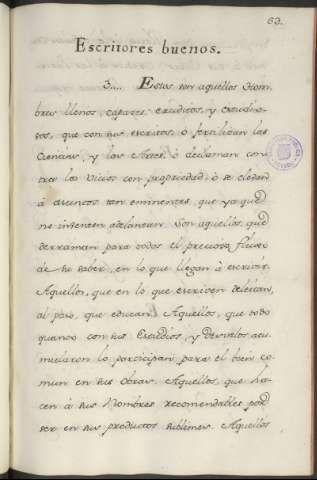 63.
Escritores buenos.
3... Estos son aquellos Hom-
bres llenos, capaces, eruditos, y estudio-
sos, que con sus escritos, ò fertilizan las
Ciencias, y las Artes, ò declaman con-
tra los Vicios con propiedad, ò se elevan
à asuntos tan eminentes, que ya que
no intenten adelantar. Son aquellos, que
derraman para todos el precioso
de su saber, en lo que llegan à escrivir.
Aquellos, que en lo que escriven deleitan,
al paso, que educan. Aquellos, que todo
quanto con sus Estudios, y Desvelos acu-
mularon lo participan para el bien co-
mun en sus Obras. Aquellos, que ha-
cen à sus Nombres recomendables por
ser en sus productos sublimes. Aquellos